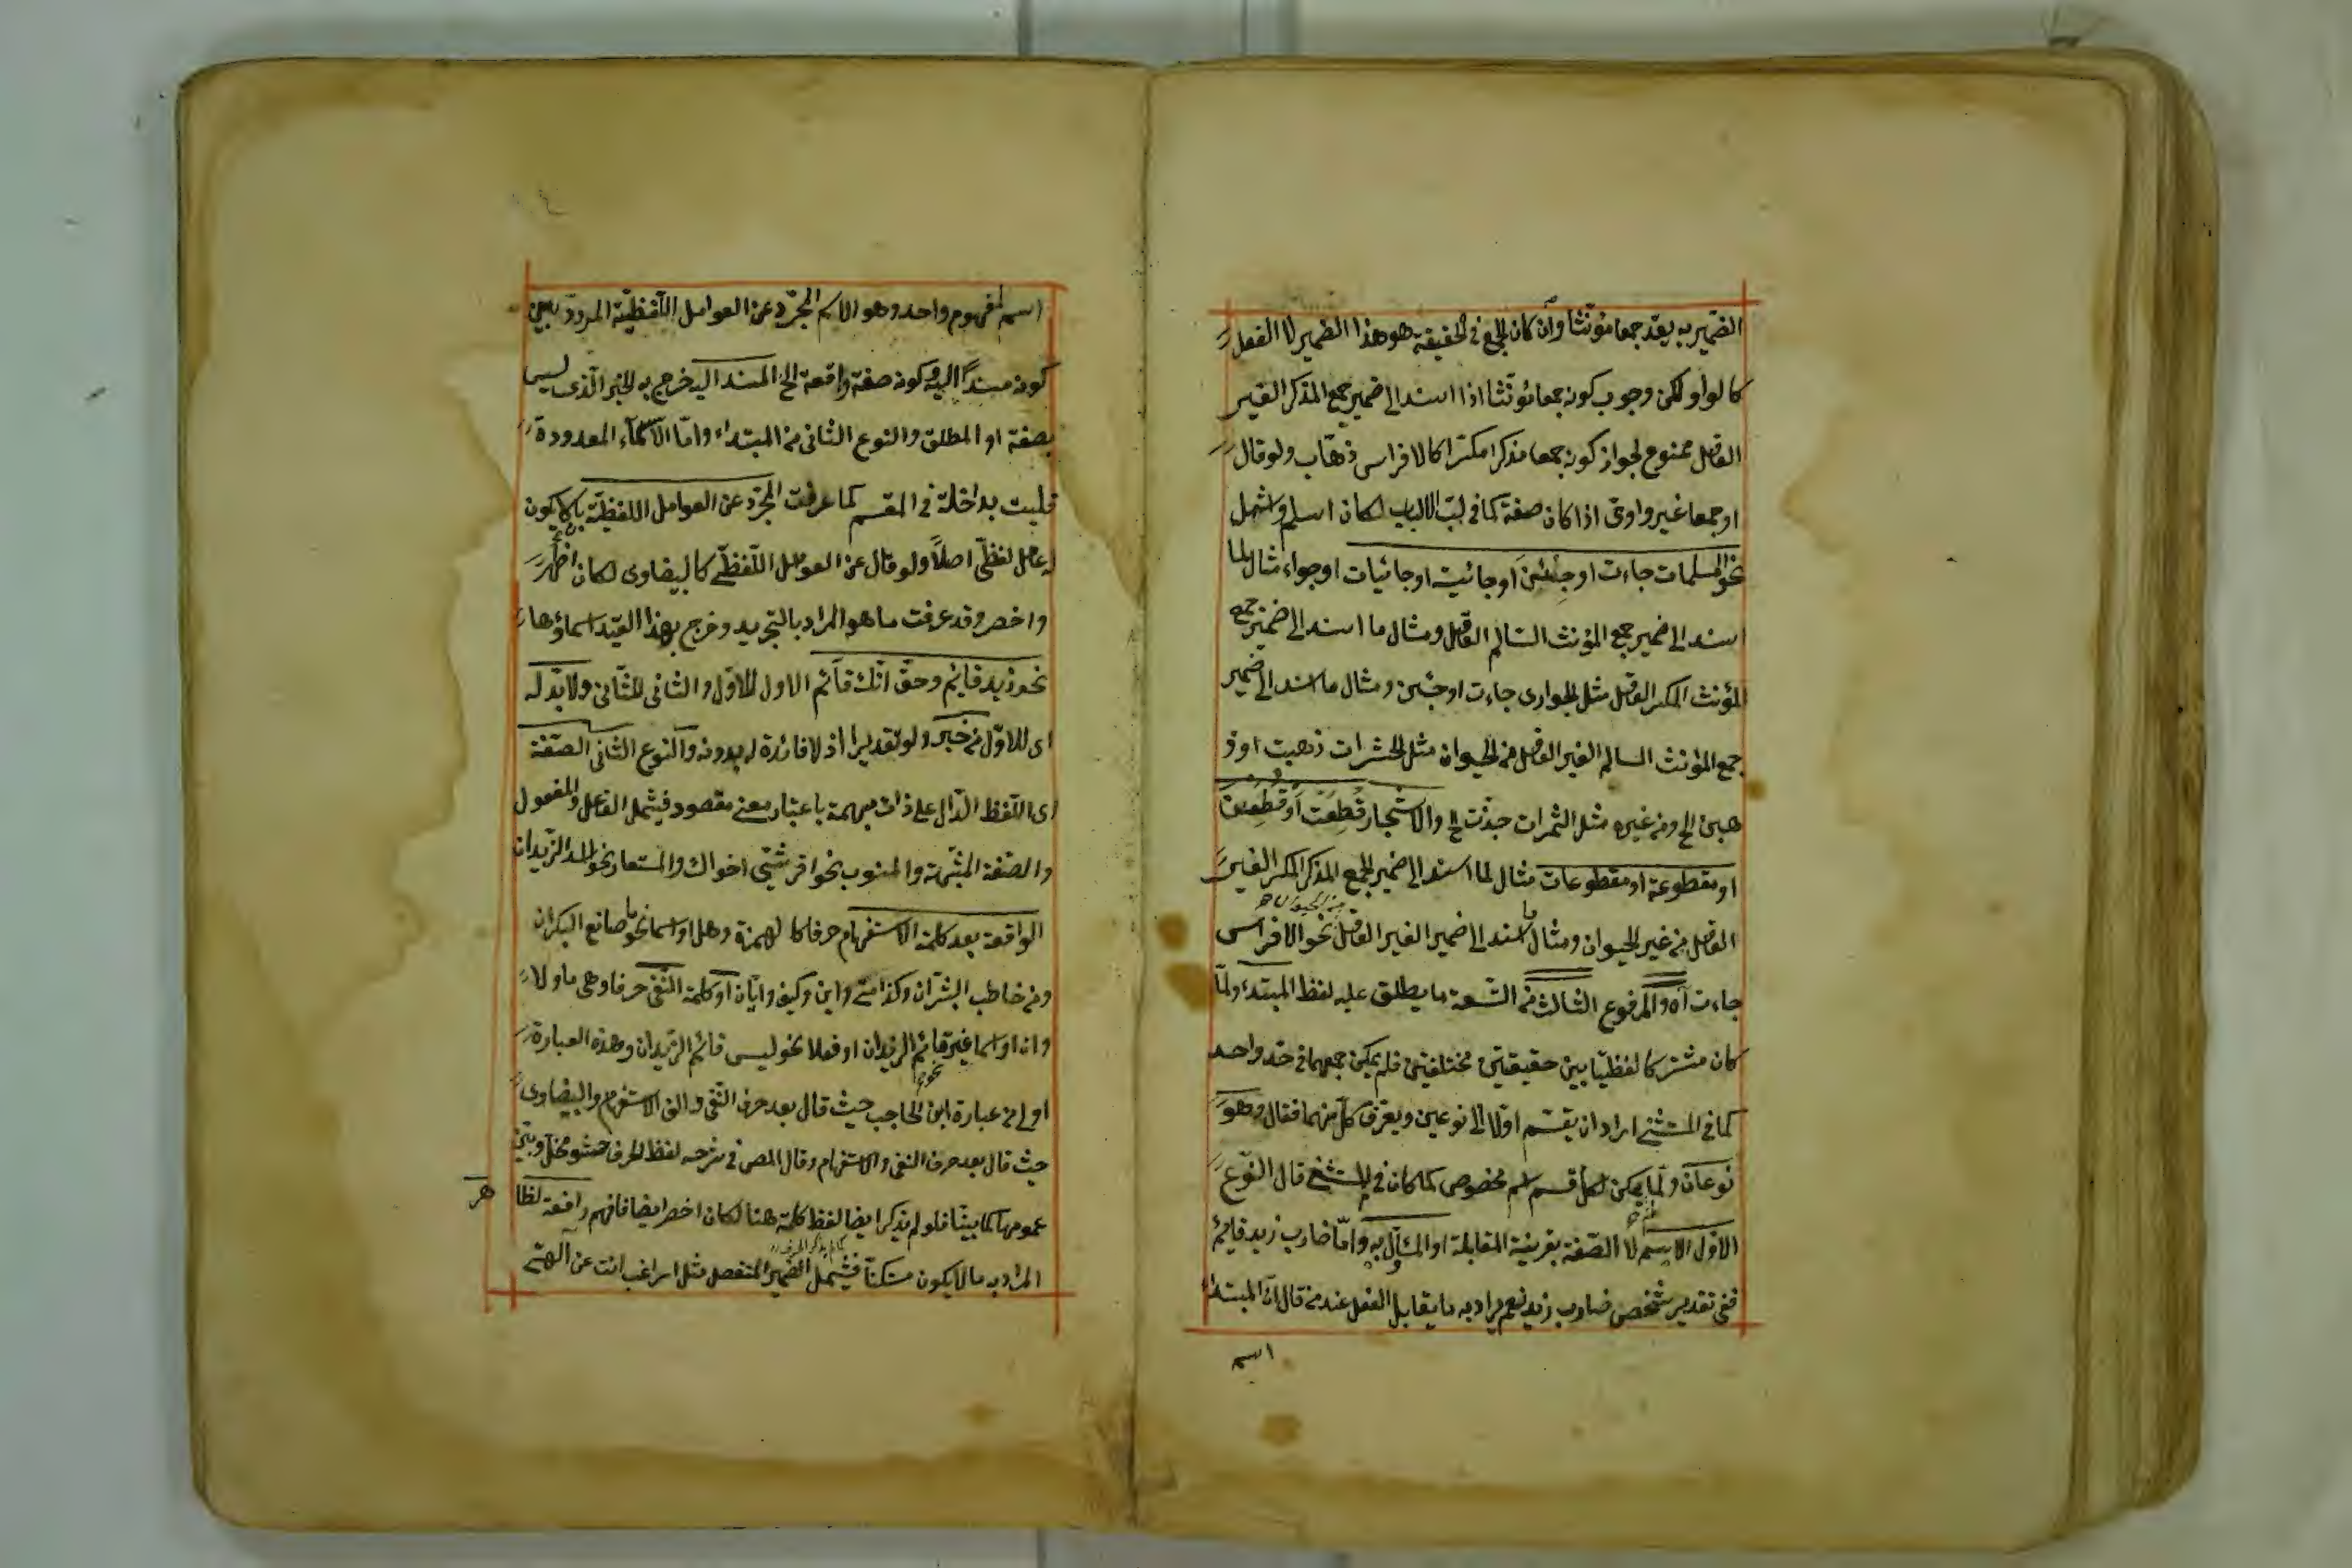 الضمير به يعد جمعا مؤنثا وان كان الجمع في الحقيقة هو هذا الضمير لا الفعل
كالواو لكن وجوب كونه جمعا مؤنثا اذا اسند الى ضمير جمع المذكر الغير
العاقل ممنوع لجواز كونه جمعا مذكرا مكسرا كالافراس ذهاب ولو قال
او جمعا غير واوى اذا كان صفة كما في لب الالباب لكان اسلم واشمل
نحو المسلمات جاءت او جئن او جائية او جائيات او جواء مثال لما
اسند الى ضمير جمع المؤنث السالم العاقل ومثال ما اسند الى ضمير جمع
المؤنث المكسر العاقل مثل الجوارى جاءت او جئن ومثال ما اسند الى ضمير
جمع المؤنث السالم الغير العاقل من الحيوان مثل الحشرات ذهبت او ذ
هبن الخ ومن غيره مثل الثمرات جذت الخ والاشجار قطعت او قطعن
او مقطوعة او مقطوعات مثال لما اسند الى ضمير الجمع المذكر المكسر الغير
العاقل من غير الحيوان ومثال ما اسند الى ضمير الغير العاقل من الحيوان نحو الافراس
جاءت اه والمرفوع الثالث من التسعة ما يطلق عليه لفظ المبتدء ولما
كان مشتركا لفظيا بين حقيقتين مختلفتين فلم يمكن جمعهما في حد واحد
كما في المستثنى اراد ان يقسم اولا الى نوعين ويعرف كل منهما فقال وهو
نوعان ولما لم يكن لكل قسم اسم مخصوص كما كان في المستثنى قال النوع
الاول الاسم لا الصفة بقرينة المقابلة او المأول به واما ضارب زيد قائم
ففي تقدير شخص ضارب زيد نعم يراد به ما يقابل الفعل عند من قال ان المبتداء
اسم
اسم لمفهوم واحد وهو الاسم المجرد عن العوامل اللفظية المردد بين
كونه مسندا اليه وكونه صفة واقعة الخ المسند اليه خرج به الخبر الذى ليس
بصفة او المطلق والنوع الثانى من المبتداء واما الاسماء المعدودة
فليست بداخلة في المقسم كما عرفت المجرد عن العوامل اللفظية بان لا يكون
له عامل لفظى اصلا ولو قال عن العوامل اللفظى كالبيضاوى لكان اظهر
واخصر وقد عرفت ما هو المراد بالتجريد وخرج بهذا القيد اسماؤها
نحو زيد قائم وحق انك قائم الاول للاول والثانى للثانى ولا بد له
اى للاول من خبر ولو تقديرا اذ لا فائدة له بدونه والنوع الثانى الصفة
اى اللفظ الدال على ذات مبهمة باعتبار معنى مقصود فيشمل الفاعل والمفعول
والصفة المشبهة والمنسوب نحو اقرشيى اخواك والمستعار نحو الزيدان
الواقعة بعد كلمة الاستفهام حرفا كالهمزة وهل او اسما نحو ما صانع البكران
ومن خاطب البشران وكذا متى واين وكيف وايان او كلمة النفى حرفا وهى ما ولا
وان او اسما غير قائم الزيدان او فعلا نحو ليس قائم الزيدان وهذه العبارة
اولى من عبارة ابن الحاجب حيث قال بعد حرف النفى والف الاستفهام والبيضاوى
حيث قال بعد حرف النفى والاستفهام وقال المص في شرحه لفظ الحرف حشو مخل وبين
عمومها كما بينا فلو لم يذكر ايضا لفظ كلمة هنا لكان اخصر ايضا فافهم رافعة لظا
هر
المراد به ما لا يكون مستكنا فيشمل الضمير المنفصل مثل اراغب انت عن الهتى